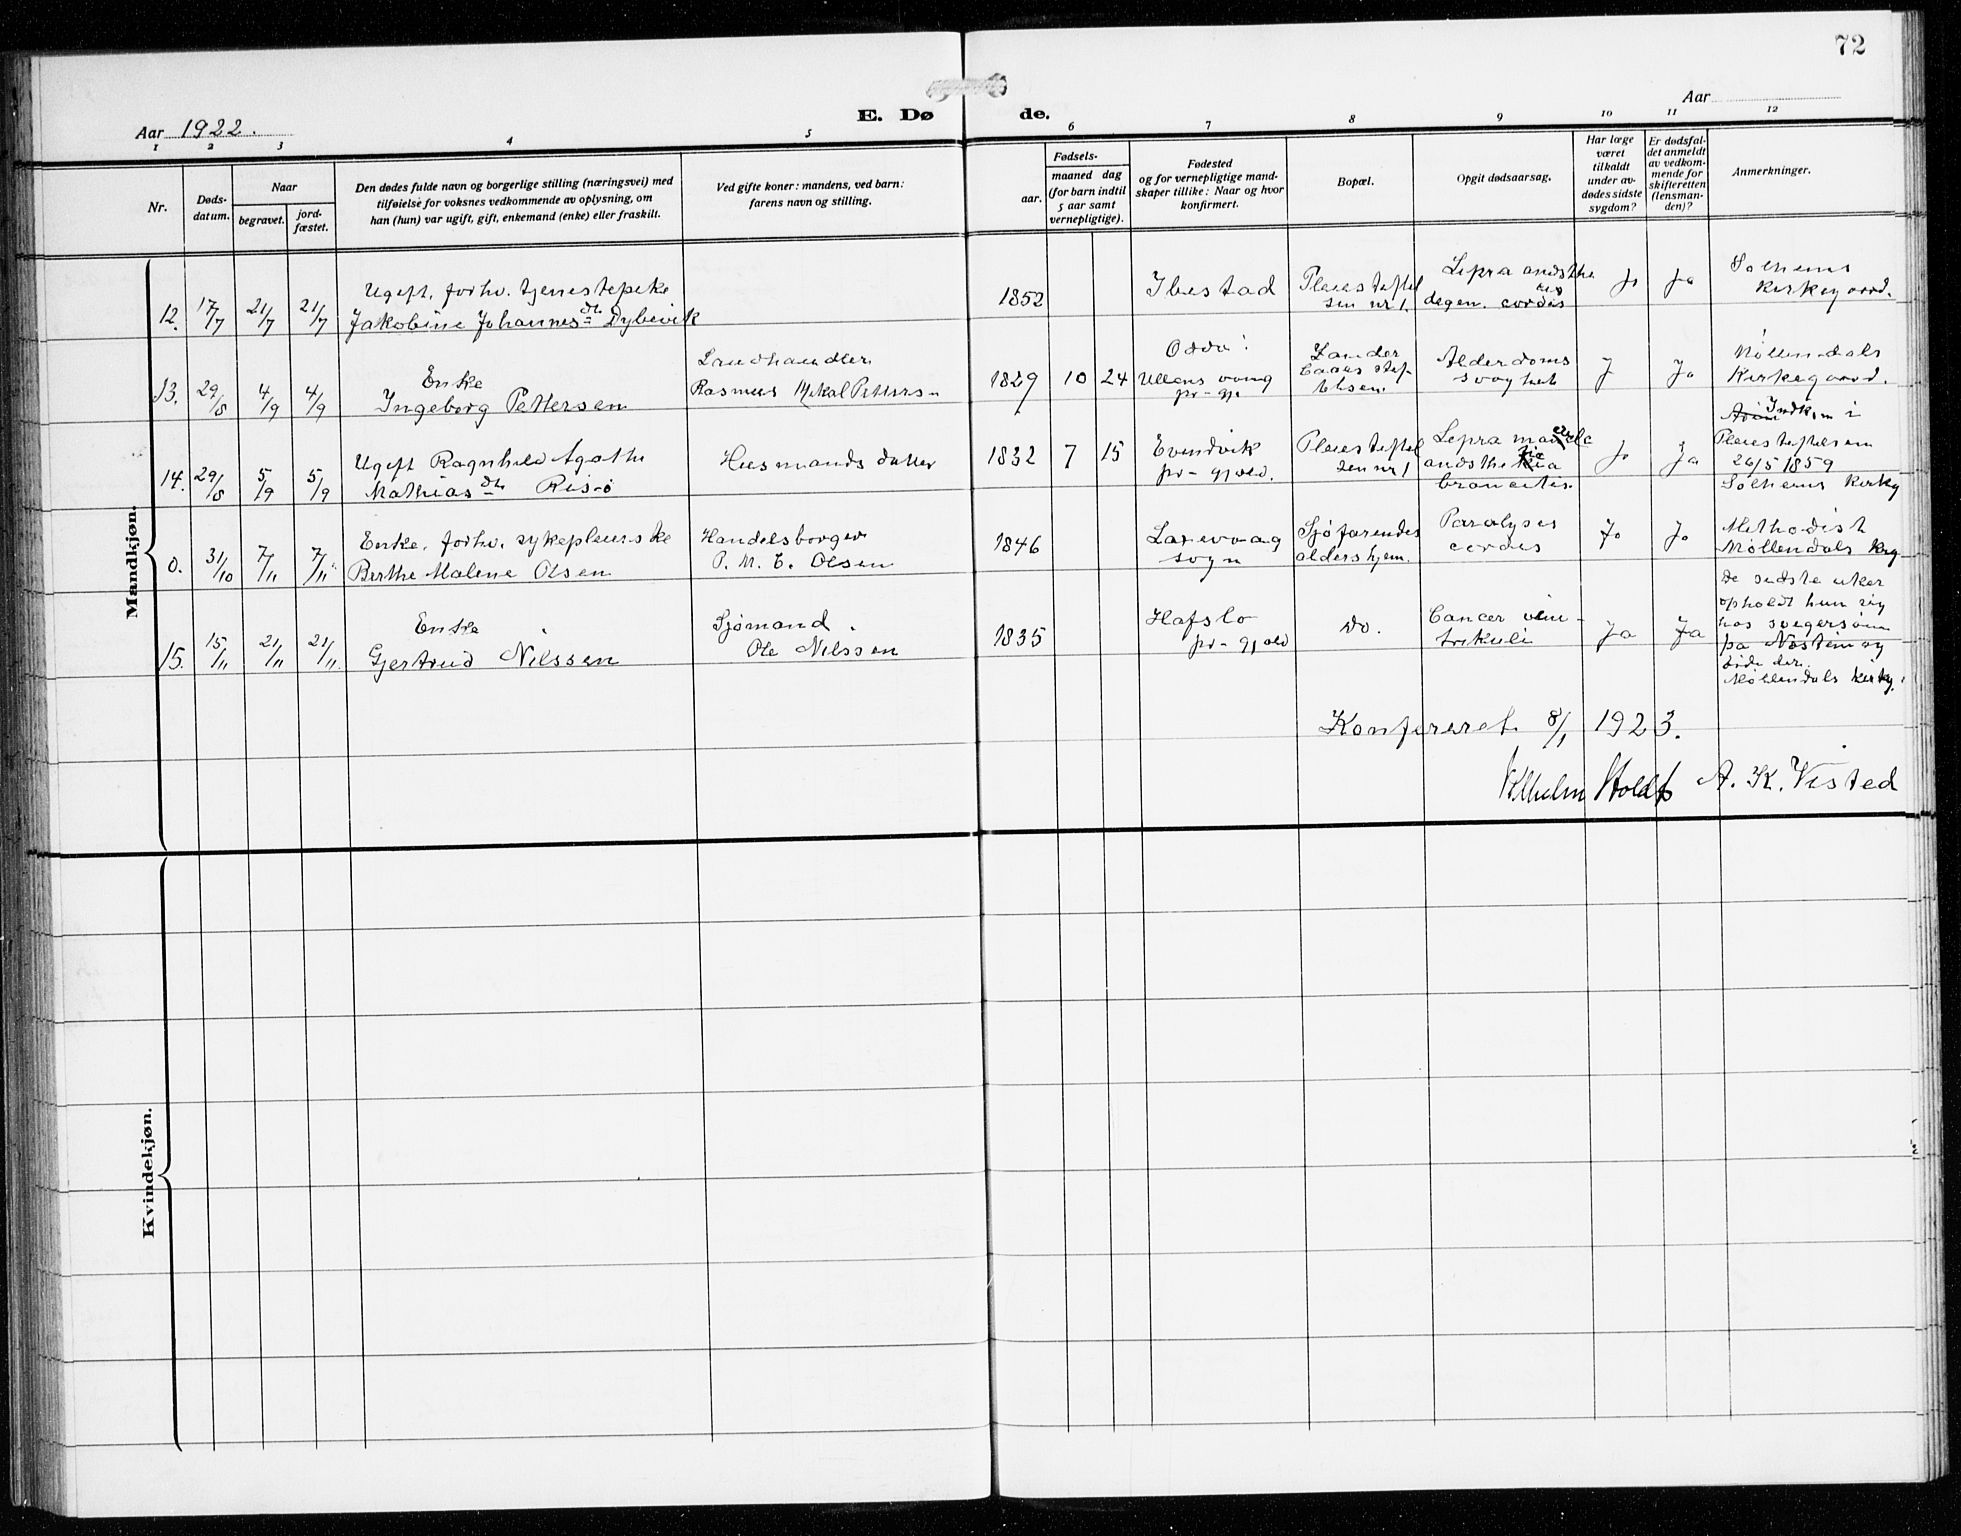 72
Aar 1922.
E. Døde.
Aar
1 2 3 4 5 6 7 8 9 10 11 12
Nr.
Døds-
datum.
Naar
begravet.
jord-
fæstet.
Den dødes fulde navn og borgerlige stilling (næringsvei) med
tilføielse for voksnes vedkommende av oplysning, om
han (hun) var ugift, gift, enkemand (enke) eller fraskilt.
Ved gifte koner: mandens, ved barn:
farens navn og stilling.
Fødsels-
aar.
maaned dag
(for barn indtil
5 aar samt
vernepligtige).
Fødested
og for vernepligtige mand-
skaper tillike: Naar og hvor
konfirmert.
Bopæl.
Opgit dødsaarsag.
Har læge
været
tilkaldt
under av-
dødes sidste
sygdom?
Er dødsfal-
det anmeldt
av vedkom-
mende for
skifteretten
(lensman-
den)?
Anmerkninger.
Mandkjøn.
12. 17/7 21/7 21/7
Ugift, forhv. tjenestepike
Jakobine Johannesdtr Dybevik
1852
Ibestad
Pleiestiftel
sen nr 1.
Lepra anæsthe
degen. cordis
Ja
Ja
Solheims
kirkegaard.
13. 29/8 4/9 4/9
Enke
Ingeborg Pettersen
Landhandler
Rasmus Mikal Petters-n
1829 10 24
Odda:
Ullensvang
pr-gj.
Zander
Kaaes stif-
telsen.
Alderdoms
svaghet
J
Ja
Møllendals
Kirkegaard.
14. 29/8 5/9 5/9
Ugift Ragnhild Agathe
Mathiasdtr Risø
Husmands datter
1832 7 15
Evindvik
pr-gjæld.
Pleiestiftel
sen nr 1
Lepra
bronchitis.
Ja
Ja
Indkom i
Pleiestiftelsen
26/5 1859
Solheims Kirkg
0. 31/10 7/11 7/11
Enke, forhv. sykepleierske
Berthe Malene Olsen
Handelsborger
P. M. E. Olsen
1846
Laxevaag
sogn
Sjøfarendes
aldershjem.
Paralysis
cordis
Ja
Ja
Methodist
Møllendals Krg
15. 15/11 21/11 21/11.
Enke
Gjertrud Nilssen
Sjømand
Ole Nilssen
1835
Hafslo
pr-gjæld
Do.
Cancer ven-
trikuli
Ja
Ja
De sidste uker
opholdt hun sig
hos svigersøn
paa Nøstein og
døde der.
Møllendals Kirkg.
Konfereret 8/1 1923.
Vilhelm Holdt A. K. Visted
Kvindekjøn.